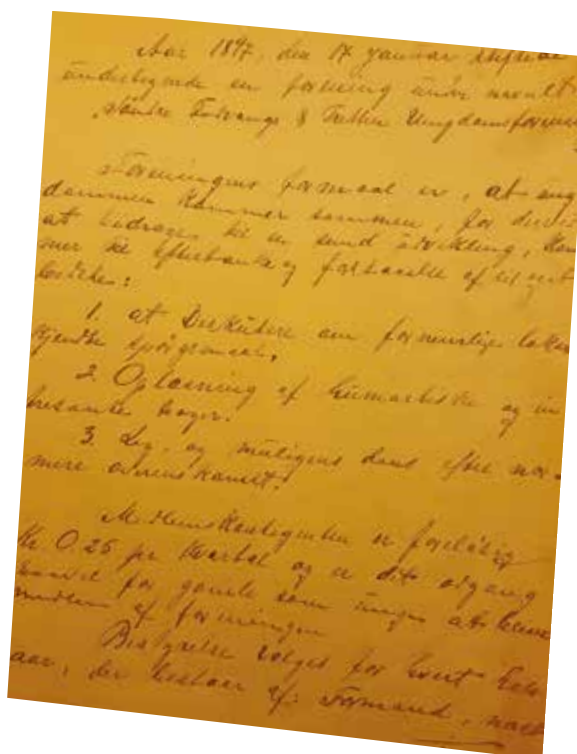 Aar 1897, den 17 Januar stiftede
undertegnede en forening under navnet
Søndre & Ungdomsforening
Foreningens formaal er, at ung
dommen kommer sammen, for derved
at bidrage til en sund udvikling,
mer til og af
1. at Diskutere om
kjendte spørgsmaal.
2. Oplæsning af humoristiske og in
tresante bøger.
3. Leg. og muligens dans efter nær-
mere overenskomst.
Medlemskontigenten er foreløbig
Kr 0.25 pr Kvartal og er det adgang
saavel for gamle som unge at blive
medlem af foreningen
Bestyrelse vælges for hvert
aar, der bestaar af: Formand,